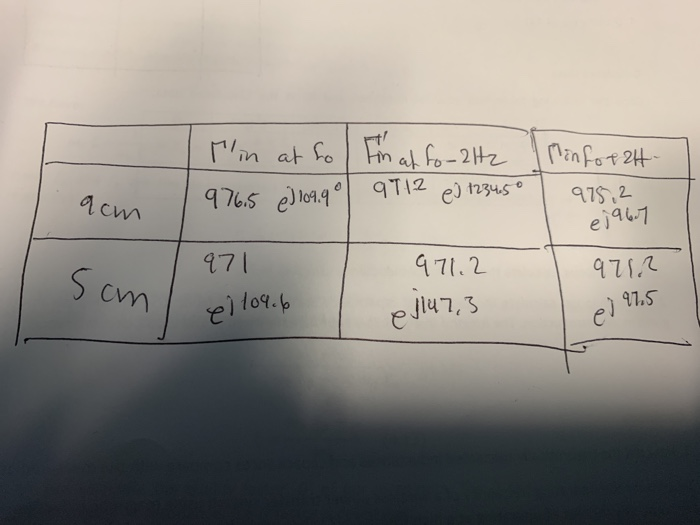 Γ'in at fo
Γ'in at fo-2Hz
Γin fo+2H-
9cm
976.5 e^j109.9°
9712 e^j1234.5°
975.2
e^j96.7
5 cm
971
e^j109.6
971.2
e^j147.3
971.2
e^j97.5